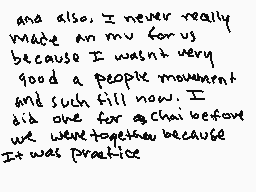 and also, I never really
made an mv for us
because I wasnt very
good a people movement
and such till now. I
did one for chai before
we were together because
It was practice